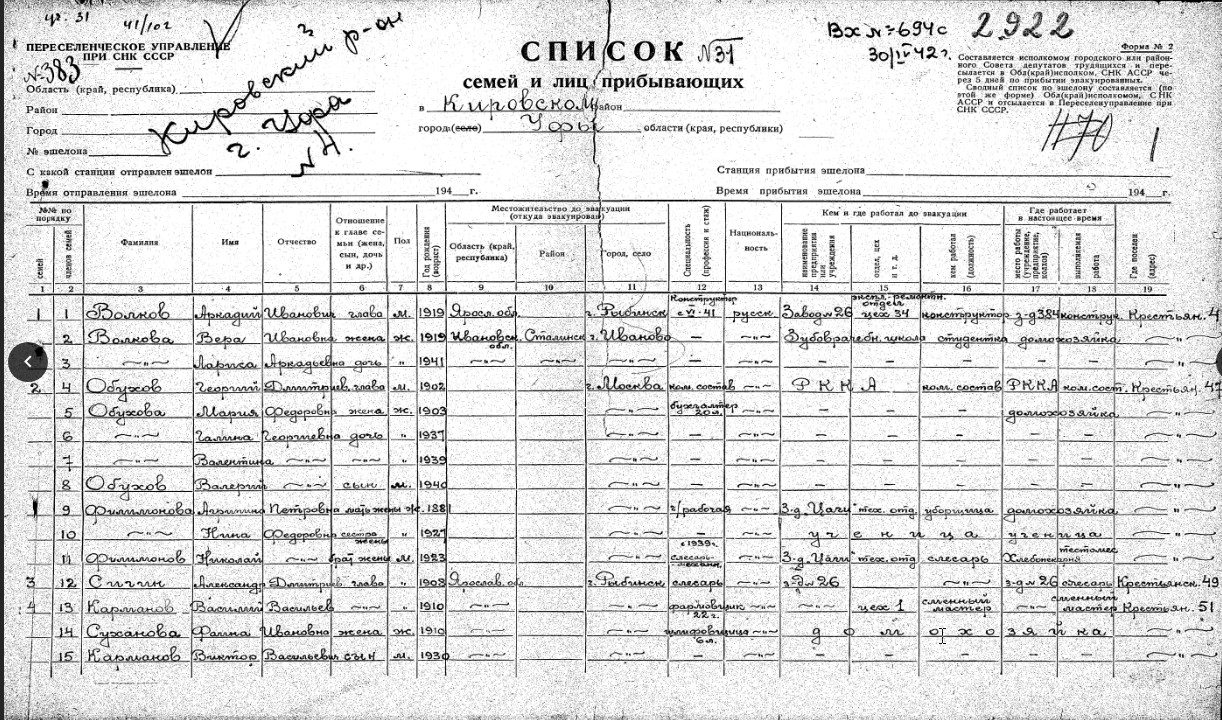 41/102
ПЕРЕСЕЛЕНЧЕСКОЕ УПРАВЛЕНИЕ
ПРИ СНК СССР
№383
Область (край, республика)
Район
Город
№ эшелона
С какой станции отправлен эшелон
Время отправления эшелона 194 г.
Кировский р-он
г. Уфа
СПИСОК №31
семей и лиц, прибывающих
в Кировском район
город (село) Уфы области (края, республики)
Вх №694с 2922
30/IV 42г.
Форма № 2
Составляется исполкомом городского или район-
ного Совета депутатов трудящихся и пере-
сылается в Обл(край)исполком, СНК АССР че-
рез 5 дней по прибытии эвакуированных.
Сводный список по эшелону составляется (по
этой же форме) Обл(край)исполкомом, СНК
АССР и отсылается в Переселенуправление при
СНК СССР.
Станция прибытия эшелона
Время прибытия эшелона 194 г.
№№ по порядку
семей
членов семей
Фамилия
Имя
Отчество
Отношение к главе се-мьи (жена, сын, дочь и др.)
Пол
Год рождения (возраст)
Местожительство до эвакуации (откуда эвакуирован)
Область (край, республика)
Район
Город, село
Специальность (профессия и стаж)
Националь-ность
Кем и где работал до эвакуации
наименование предприятия или учреждения
отдел, цех и т. д.
кем работал (должность)
Где работает в настоящее время
место работы (учреждение, предприятие, колхоз)
выполняемая работа
Где поселен (адрес)
1 2 3 4 5 6 7 8 9 10 11 12 13 14 15 16 17 18 19
1 1 Волков Аркадий Иванович глава м. 1919 Яросл. обл. г. Рыбинск Конструктор с VI-41 русск. Завод №26 экспл.-ремонтн. отдел цех 34 конструктор з-д 384 конструк. Крестьян. 4
2 Волкова Вера Ивановна жена ж. 1919 Ивановск. обл. Сталинск г. Иваново — —"— Зубоврачебн. школа студентка домохозяйка —"—
3 —"— Лариса Аркадьевна дочь " 1941 —"— —"— —"— — —"— — — — — — —"—
2 4 Обухов Георгий Дмитриев. глава м. 1902 г. Москва ком. состав —"— РККА ком. состав РККА ком. сост. Крестьян. 47
5 Обухова Мария Федоровна жена ж. 1903 —"— бухгалтер 20 л. —"— — — — домохозяйка —"—
6 —"— Галина Георгиевна дочь " 1937 —"— — —"— — — — — — —"—
7 —"— Валентина —"— —"— " 1939 —"— — —"— — — — — — —"—
8 Обухов Валерий —"— сын м. 1940 —"— — —"— — — — — — —"—
9 Филимонова Агрипина Петровна мать жены ж. 1881 —"— ч/рабочая —"— З-д Цаги тех. отд. уборщица домохозяйка —"—
10 —"— Нина Федоровна сестра жены " 1927 —"— — —"— ученица ученица —"—
11 Филимонов Николай —"— брат жены м. 1923 —"— с 1939г. слесарь-механик —"— З-д Цаги тех. отд слесарь Хлебопекарня тестомес —"—
3 12 Сигин Александр Дмитриев. глава " 1908 Ярослав. об. г. Рыбинск слесарь —"— з-д №26 —"— з-д №26 слесарь Крестьянск. 49
4 13 Карманов Василий Васильев —"— " 1910 —"— —"— формовщик 22 г. —"— —"— цех 1 сменный мастер —"— сменный мастер Крестьян. 51
14 Суханова Фаина Ивановна жена ж. 1910 —"— —"— шлифовщица 6 л. —"— домохозяйка —"—
15 Карманов Виктор Васильевич сын м. 1930 —"— —"— — —"— — — — — — —"—